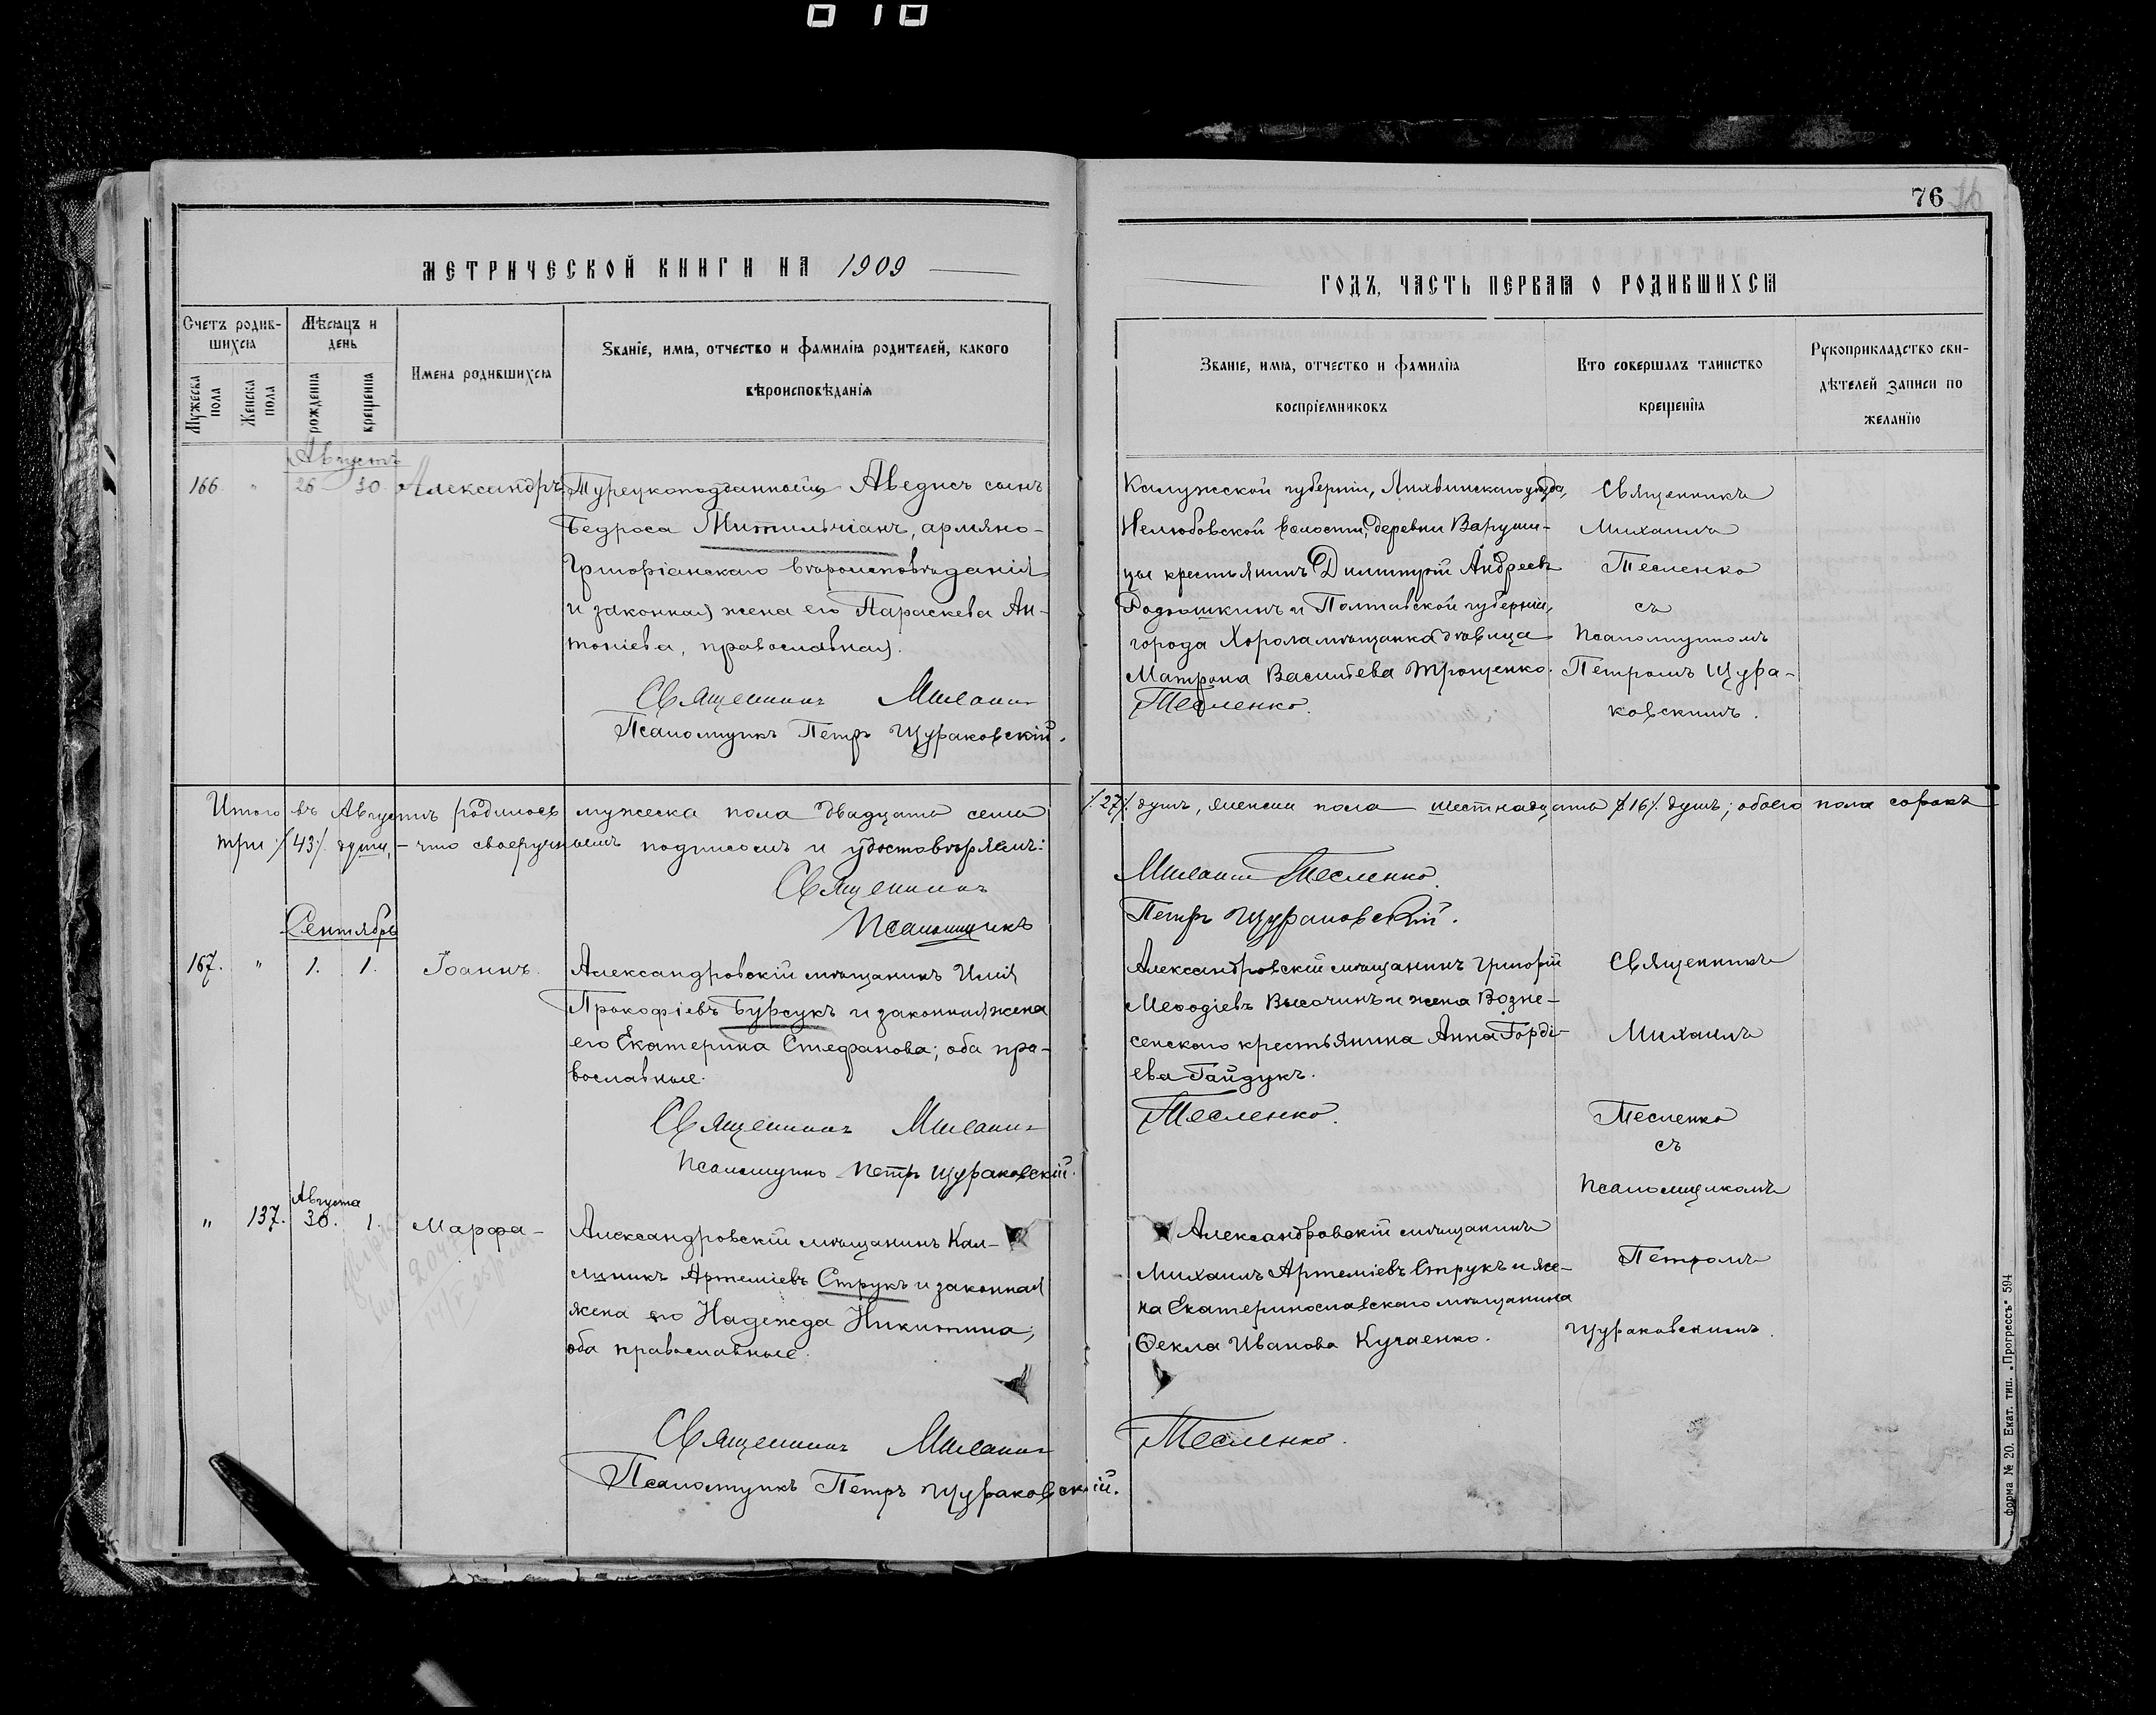 76
МЕТРИЧЕСКОЙ КНИГИ НА 1909
ГОДЪ, ЧАСТЬ ПЕРВАЯ О РОДИВШИХСЯ
Счетъ родив-
шихся
Мужеска пола
Женска пола
Мѣсяцъ и
день
рожденія
крещенія
Имена родившихся
Званіе, имя, отчество и фамилія родителей, какого
вѣроисповѣданія
Званіе, имя, отчество и фамилія
воспріемниковъ
Кто совершалъ таинство
крещенія
Рукоприкладство сви-
дѣтелей записи по
желанію
Августъ
166. " 26 30. Александръ.
Турецкоподданный Аведисъ сынъ
Бедроса Митильчіанъ, армяно-
Григоріанскаго вѣроисповѣданія
и законная жена его Параскева Ан-
тоніева, православная.
Священникъ Михаилъ
Псаломщикъ Петръ Щураковскій.
Калужской губерніи, Лихвинскаго уѣзда,
Нелюбовской волости, деревни Варуши-
цы крестьянинъ Димитрій Андреевъ
Родюшкинъ и Полтавской губерніи,
города Хорола мѣщанка дѣвица
Матрона Васильева Трощенко.
Тесленко.
Священникъ
Михаилъ
Тесленко
съ
Псаломщикомъ
Петромъ Щура-
ковскимъ.
Итого въ Августѣ родилось мужеска пола двадцать семь /27/. душъ, женска пола шестнадцать /16/. душъ; обоего пола сорокъ
три /43/. души, – что своеручнымъ подписомъ и удостовѣряемъ:
Священникъ Михаилъ Тесленко.
Псаломщикъ Петръ Щураковскій.
Сентябрь
167. " 1. 1. Іоаннъ.
Александровскій мѣщанинъ Илія
Прокофіевъ Бурсукъ и законная жена
его Екатерина Стефанова; оба пра-
вославные.
Священникъ Михаилъ
Псаломщикъ Петръ Щураковскій.
Александровскій мѣщанинъ Григорій
Меѳодіевъ Высочинъ и жена Возне-
сенскаго крестьянина Анна Горді-
ева Гайдукъ.
Тесленко.
Священникъ
Михаилъ
Тесленко
съ
Псаломщикомъ
Петромъ
Щураковскимъ.
Августа
" 137. 30. 1. Марфа
Александровскій мѣщанинъ Кал-
линикъ Артеміевъ Струкъ и законная
жена его Надежда Никитина;
оба православные.
Священникъ Михаилъ
Псаломщикъ Петръ Щураковскій.
Александровскій мѣщанинъ
Михаилъ Артеміевъ Струкъ и же-
на Екатеринославскаго мѣщанина
Ѳекла Иванова Кучаенко.
Тесленко.
Форма № 20. Екат. тип. „Прогрессъ" 594